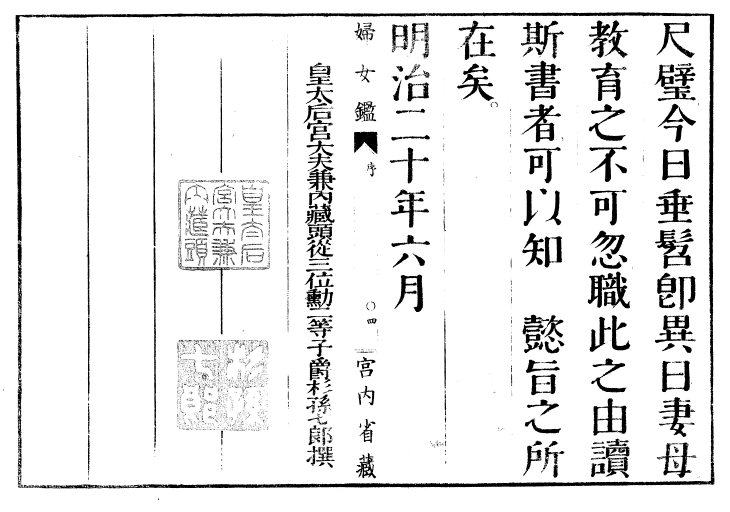 尺璧今日垂髫卽異日妻母
教育之不可忽職此之由讀
斯書者可以知　懿旨之所
在矣。
明治二十年六月
婦女鑑　序　〇四　宮内省藏
皇太后宮大夫兼內藏頭從三位勳二等子爵杉孫七郎撰
皇太后
宮大夫兼
内藏頭
杉孫
七郎